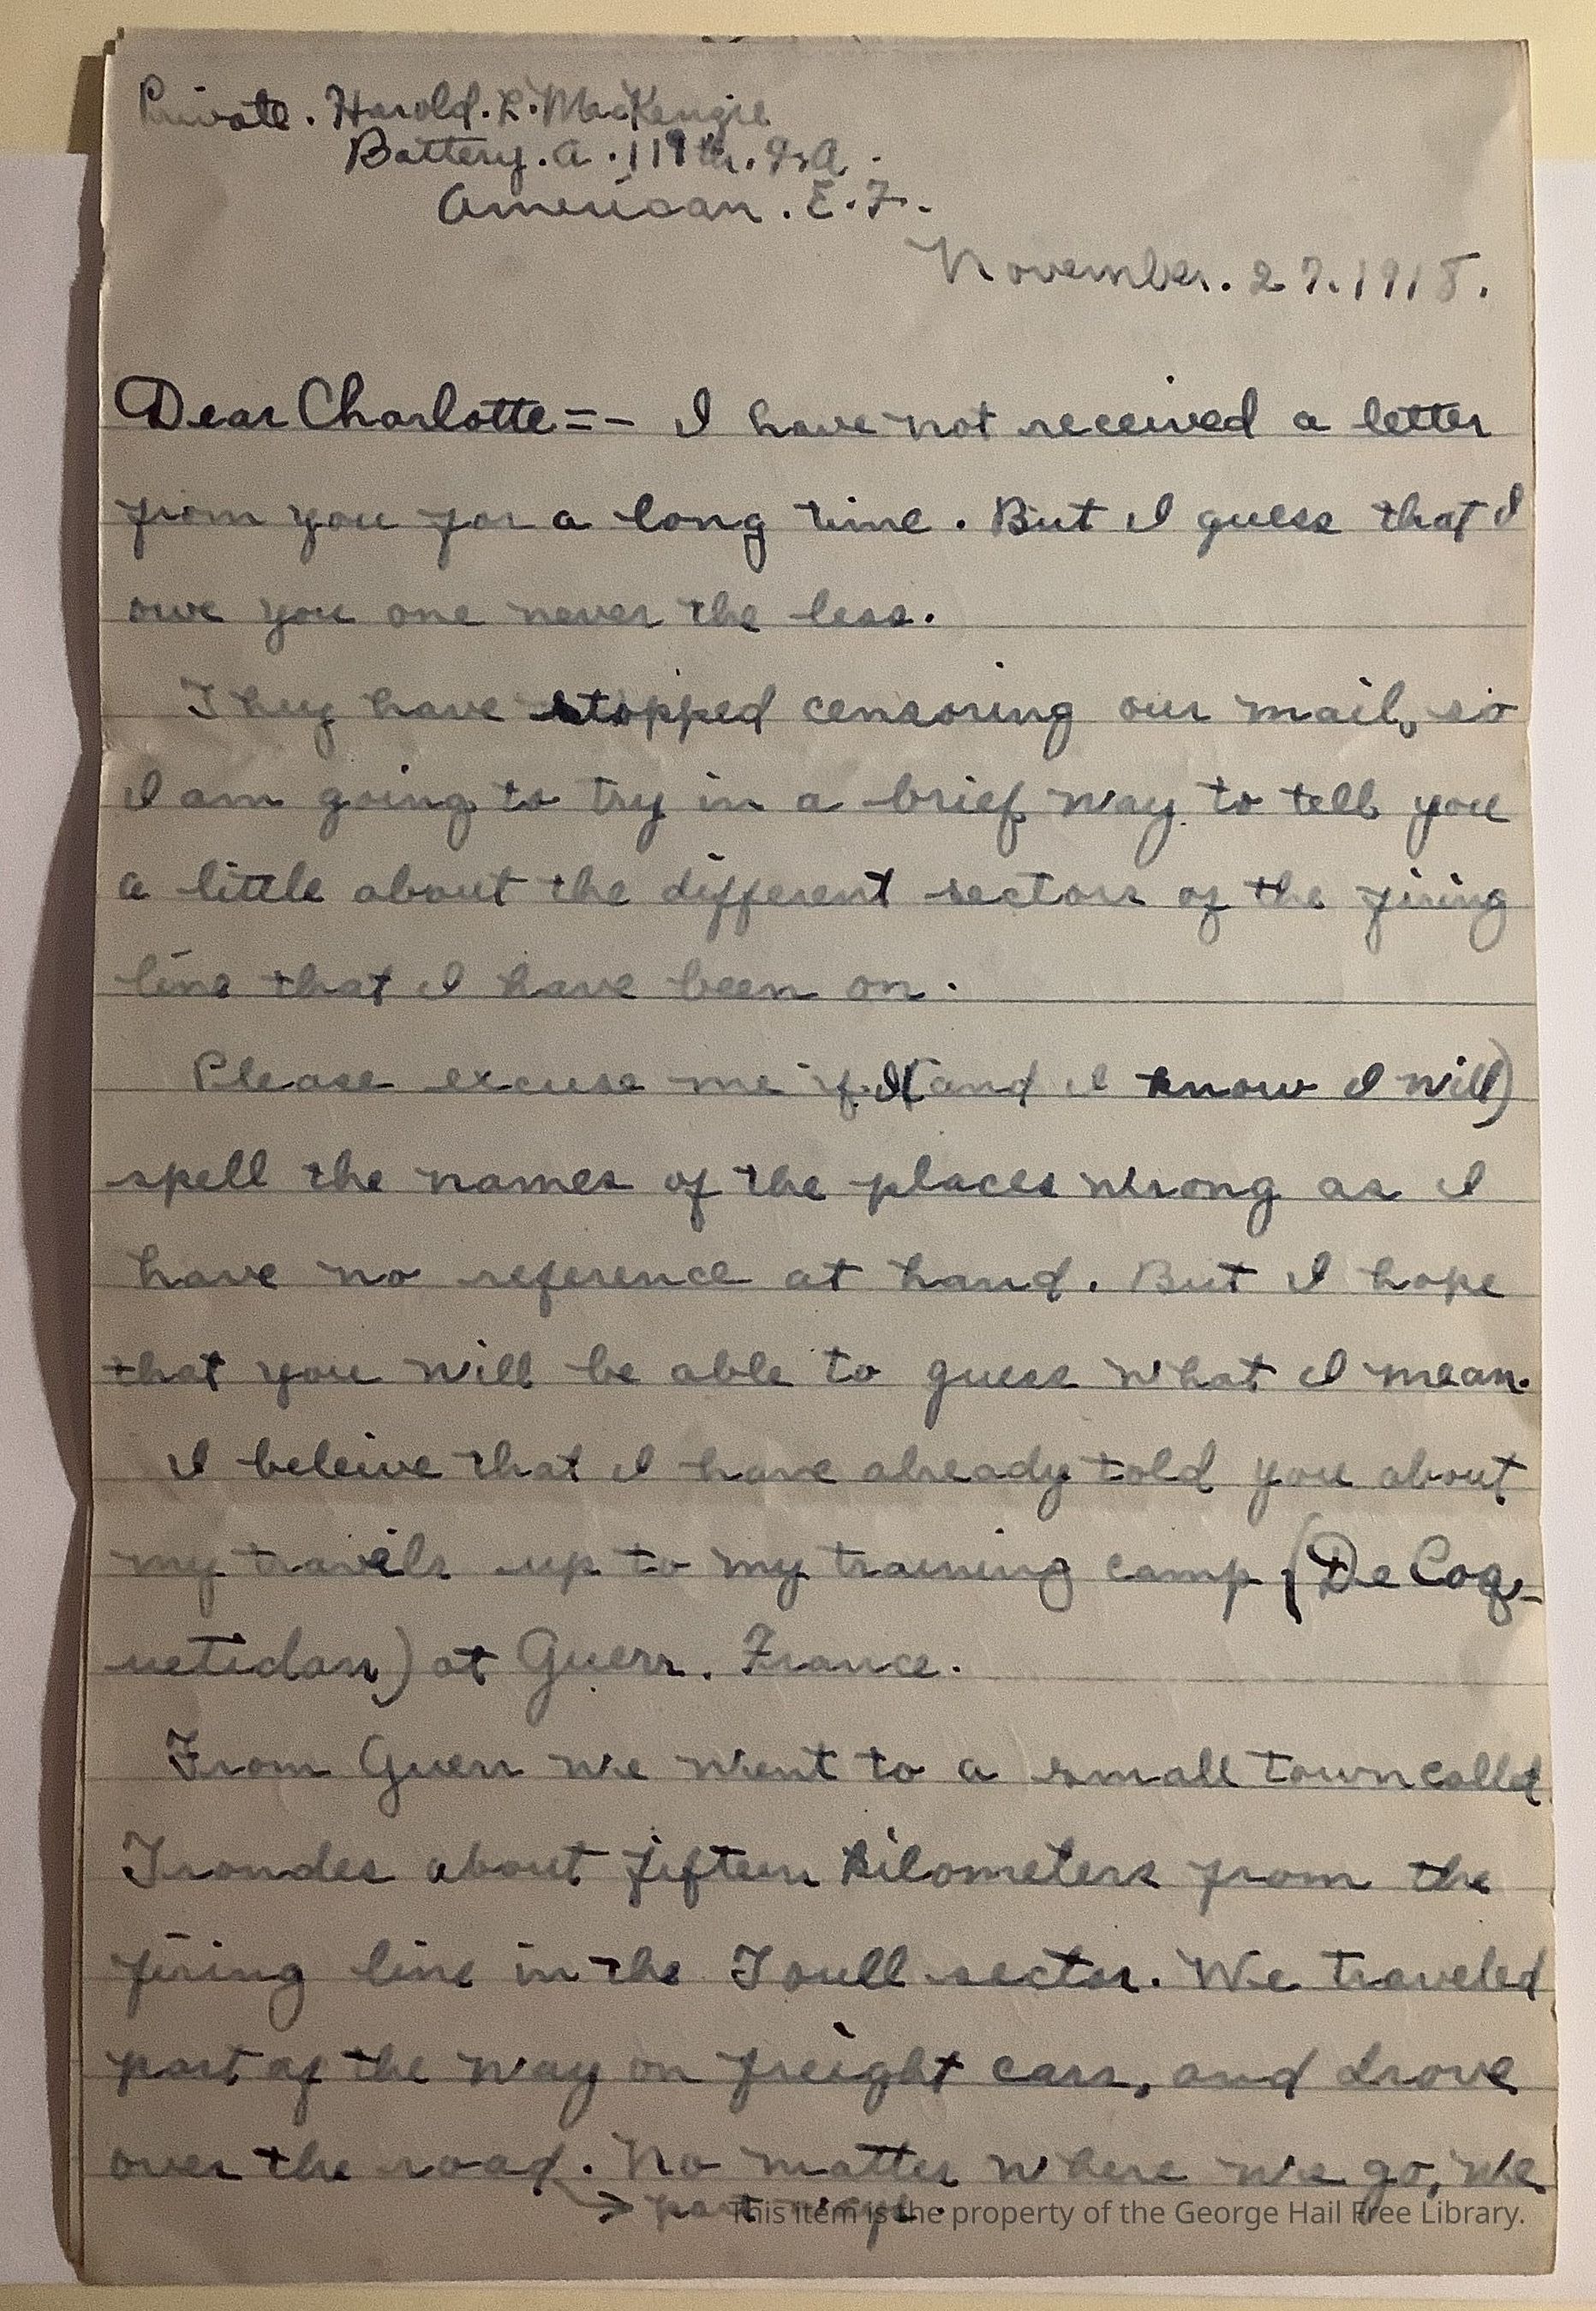 Private. Harold. L. MacKenzie
Battery. A. 119th. F.A.
American. E. F.
November. 27. 1918.
Dear Charlotte=- I have not received a letter
from you for a long time. But I guess that I
owe you one never the less.
They have stopped censoring our mail, so
I am going to try in a brief way to tell you
a little about the different sectors of the firing
line that I have been on.
Please excuse me if I (and I know I will)
spell the names of the places wrong as I
have no reference at hand. But I hope
that you will be able to guess what I mean.
I beleive that I have already told you about
my travels up to my training camp (De Coq-
uetidan) at Guerr. France.
From Guerr we went to a small town called
Trondes about fifteen kilometers from the
firing line in the Toull sector. We traveled
part of the way on freight cars, and drove
over the road. No matter where we go, we
→ part way.
This item is the property of the George Hail Free Library.